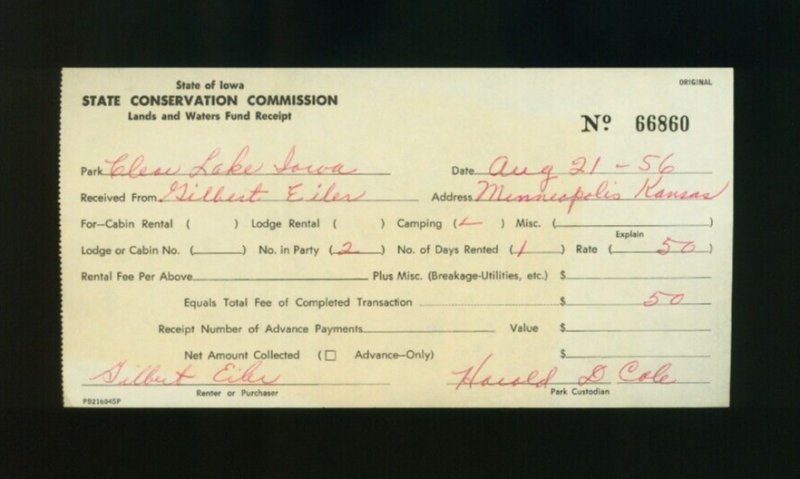 ORIGINAL
State of Iowa
STATE CONSERVATION COMMISSION
Lands and Waters Fund Receipt
Nº 66860
Park Clear Lake Iowa Date Aug 21 - 56
Received From Gilbert Eiler Address Minneapolis Kansas
For—Cabin Rental ( ) Lodge Rental ( ) Camping (✓) Misc. ( )
Explain
Lodge or Cabin No. ( ) No. in Party (2) No. of Days Rented (1) Rate ( 50 )
Rental Fee Per Above Plus Misc. (Breakage-Utilities, etc.) $
Equals Total Fee of Completed Transaction $ 50
Receipt Number of Advance Payments Value $
Net Amount Collected (☐ Advance—Only) $
Gilbert Eiler Harold D Cole
Renter or Purchaser Park Custodian
PB216045P